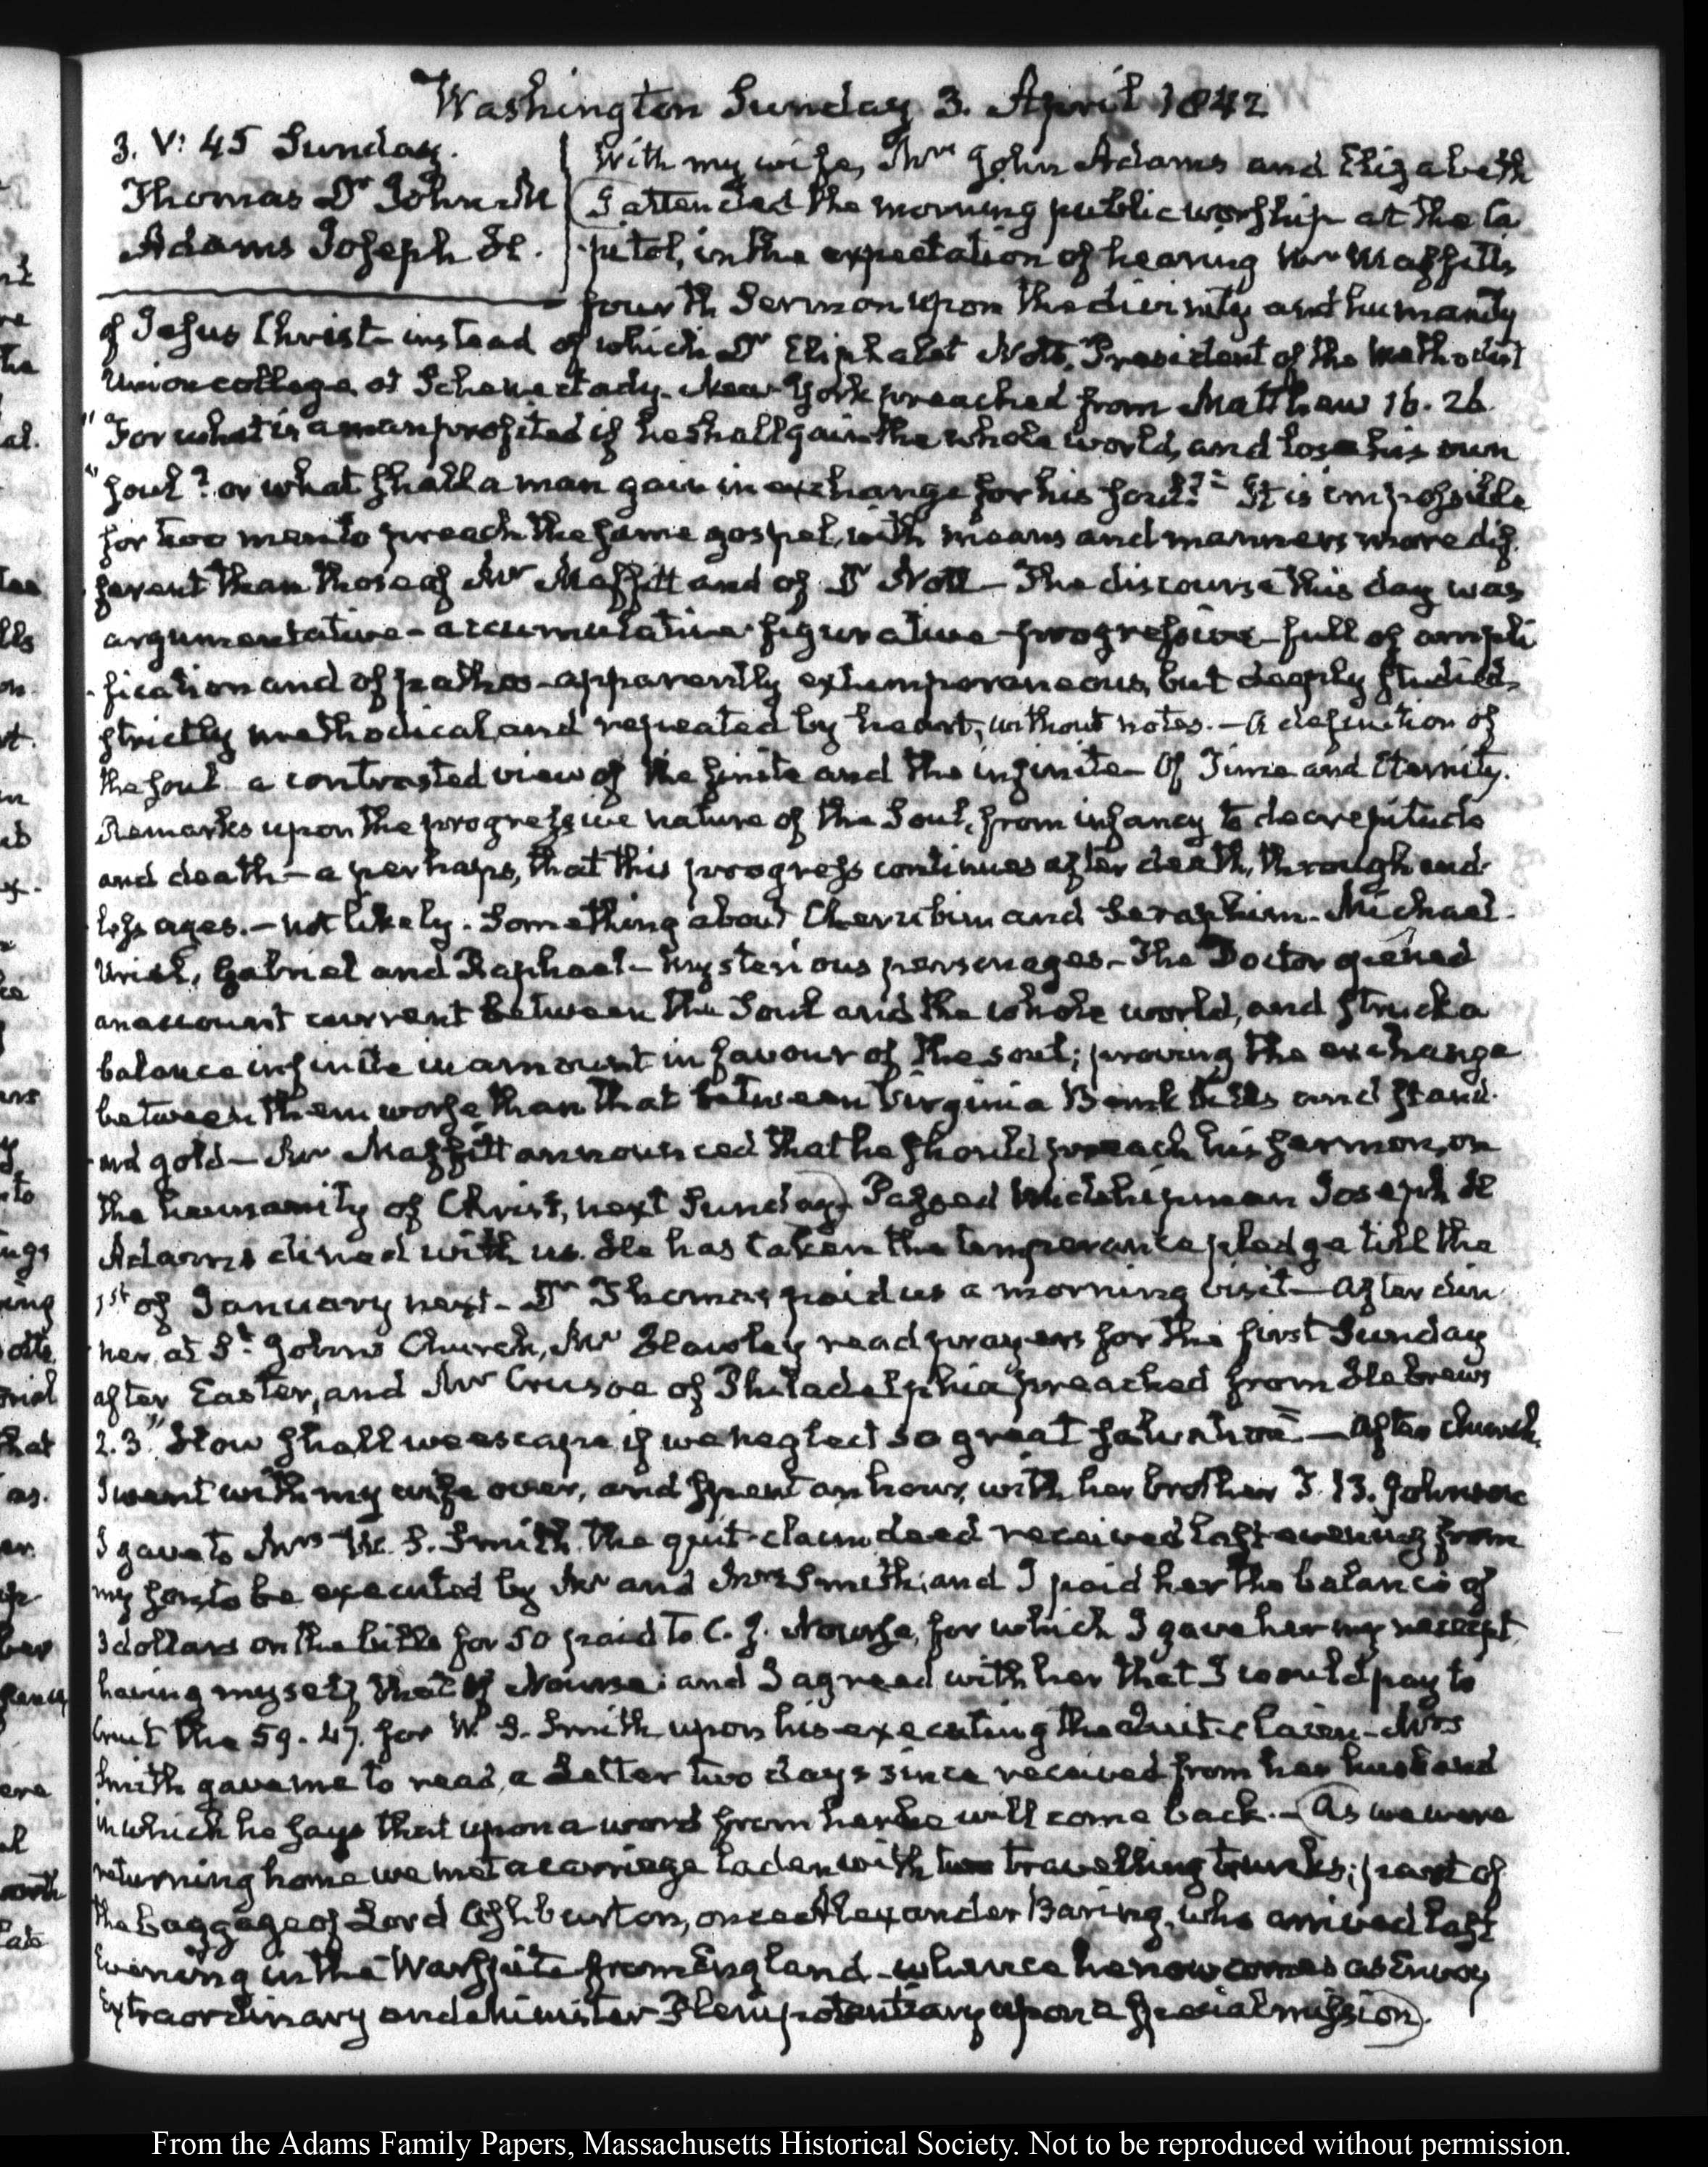 Washington Sunday 3. April 1842
3. V: 45 Sunday.
Thomas Dr John M
Adams Joseph H.
With my wife, Mrs John Adams and Elizabeth
I attended the morning public worship at the Ca
pitol, in the expectation of hearing Mr Maffitts
fourth Sermon upon the divinity and humanity
of Jesus Christ– instead of which Dr Eliphalet Nott, President of the Methodist
Union college at Schenectady– New-York preached from Matthew 16. 26.
"For what is a man profited if he shall gain the whole world, and lose his own
"soul? or what shall a man give in exchange for his soul?" It is impossible
for two men to preach the same gospel, with means and manners more dif
ferent than those of Mr Maffitt and of Dr Nott– The discourse this day was
argumentative– accumulative– figurative– progressive– full of ampli
fication and of pathos– apparently extemporaneous, but deeply studied,
strictly methodical, and repeated by heart, without notes.– A definition of
the soul– a contrasted view of the finite and the infinite– Of Time and Eternity.
Remarks upon the progressive nature of the Soul, from infancy to decrepitude
and death– a perhaps, that this progress continues after death, through end
less ages.– not likely. Something about Cherubim and Seraphim– Michael
Uriel, Gabriel and Raphael– mysterious personages– The Doctor opened
an account current between the Soul and the whole world, and struck a
balance infinite in amount in favour of the soul; proving the exchange
between them worse than that between Virginia Bank bills and stand
ard gold– Mr Maffitt announced that he should preach his sermon, on
the humanity of Christ, next Sunday– Passed Midshipman Joseph H
Adams dined with us. He has taken the temperance pledge till the
1st of January next– Dr Thomas paid us a morning visit– After din
ner, at St John's Church, Mr Hawley read prayers for the first Sunday
after Easter, and Mr Crusoe of Philadelphia preached from Hebrews
2. 3. "How shall we escape, if we neglect so great salvation"– After church
I went with my wife over, and spent an hour, with her brother T. B. Johnson
I gave to Mrs W. S. Smith the quit-claim deed received last evening from
my son, to be executed by Mr and Mrs Smith; and I paid her the balance of
3 dollars on the bills for 50 paid to C. J. Nourse, for which I gave her my receipt
having myself that of Nourse: and I agreed with her that I would pay to
the 59. 47. for W. S. Smith upon his executing the Quit-claim– Mrs
Smith gave me to read, a Letter two days since received from her husband
in which he says that upon a word from her he will come back.– As we were
returning home we met a carriage laden with travelling trunks; part of
the baggage of Lord Ashburton, once Alexander Baring, who arrived last
Evening in the Warspite from England– whence he now comes as Envoy
Extraordinary and Minister Plenipotentiary upon a special mission.
From the Adams Family Papers, Massachusetts Historical Society. Not to be reproduced without permission.